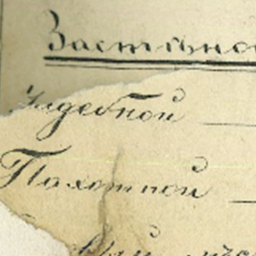 Застѣнно
Усадебной
Пахотной